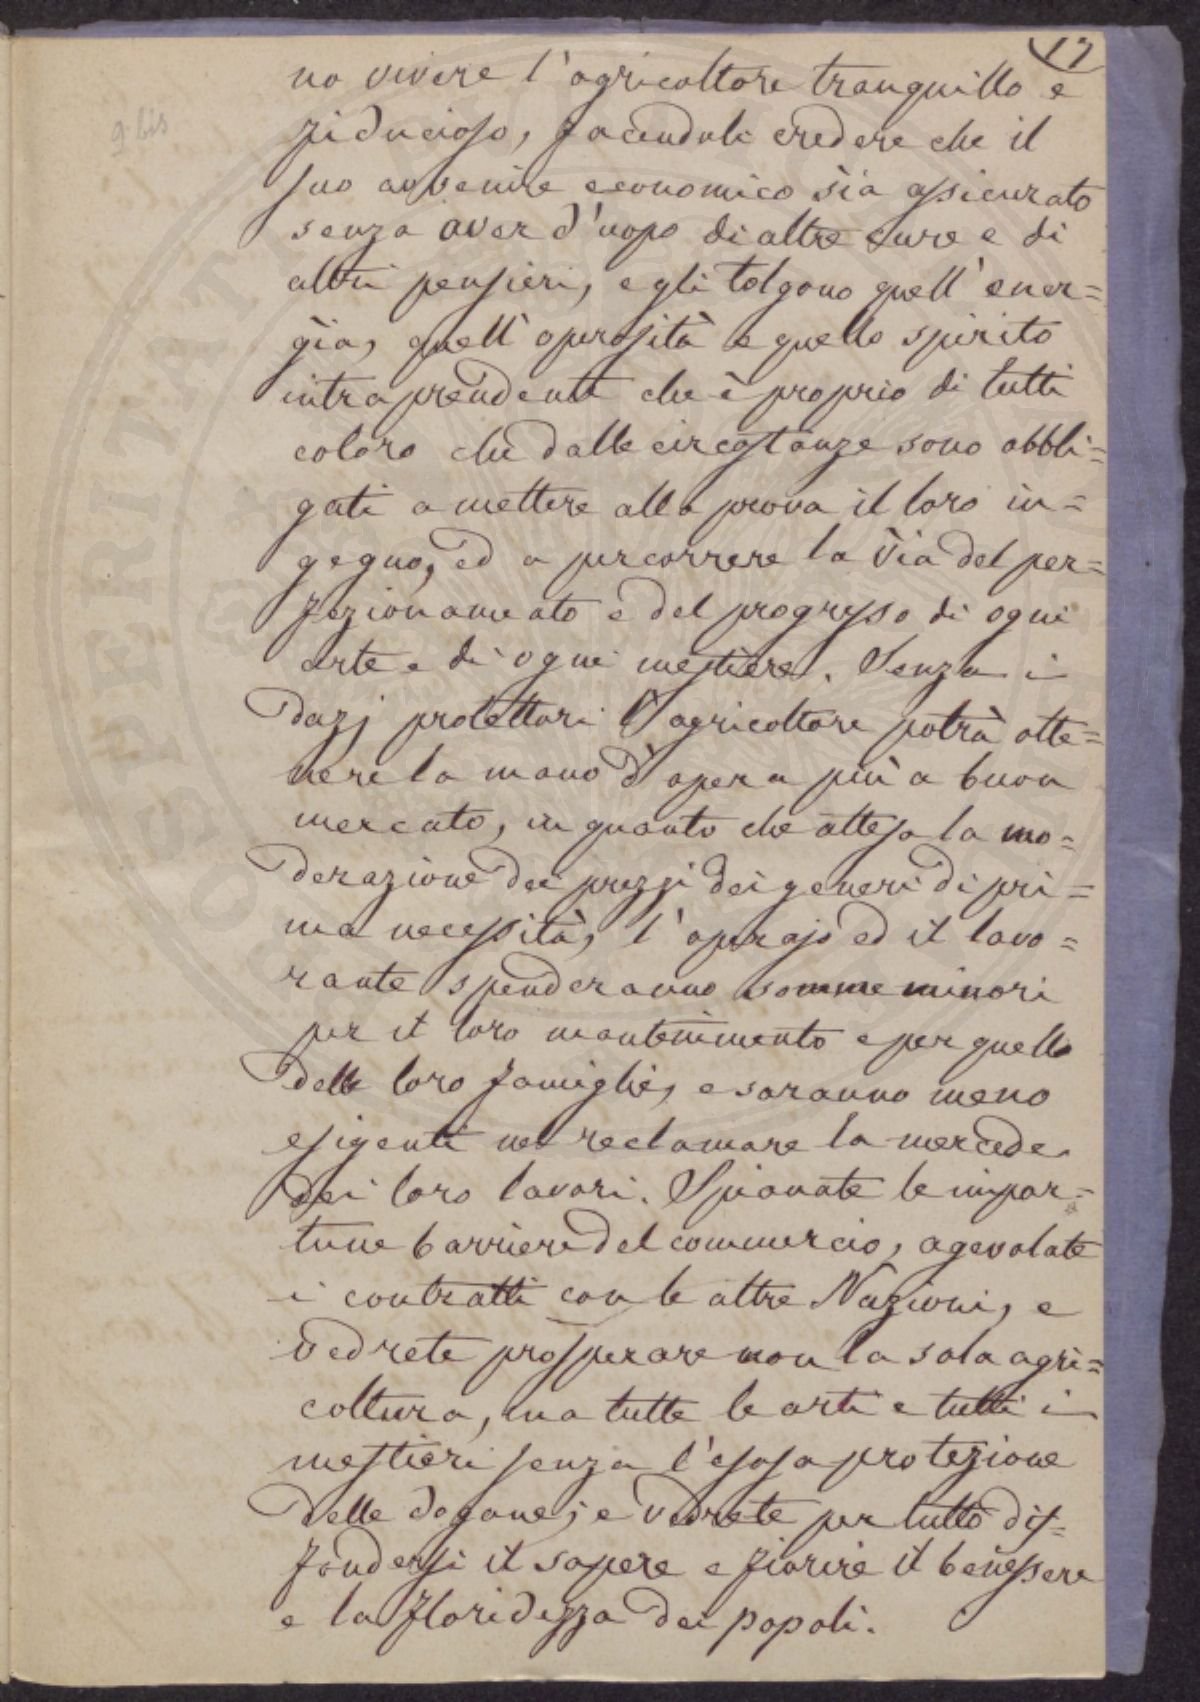 17
9 bis
no vivere l'agricoltore tranquillo e
fiducioso, facendoli credere che il
suo avvenire economico sia assicurato
senza aver d'uopo di altre cure e di
altri pensieri, e gli tolgono quell'ener=
gia, quell'operosità e quello spirito
intraprendente che è proprio di tutti
coloro che dalle circostanze sono obbli=
gati a mettere alla prova il loro in=
gegno, ed a percorrere la via del per=
fezionamento e del progresso di ogni
arte e di ogni mestiere. Senza i
dazj protettori l'agricoltore potrà otte=
nere la mano d'opera più a buon
mercato, in quanto che attesa la mo=
derazione dei prezzi dei generi di pri=
ma necessità, l'operajo ed il lavo=
rante spenderanno somme minori
per il loro mantenimento e per quello
delle loro famiglie, e saranno meno
esigenti nel reclamare la mercede
dei loro lavori. Spianate le impor=
tune barriere del commercio, agevolate
i contratti con le altre Nazioni, e
vedrete prosperare non la sola agri=
coltura, ma tutte le arti e tutti i
mestieri senza l'esosa protezione
delle dogane; e vedrete per tutto dif=
fondersi il sapere e fiorire il benessere
e la floridezza dei popoli.